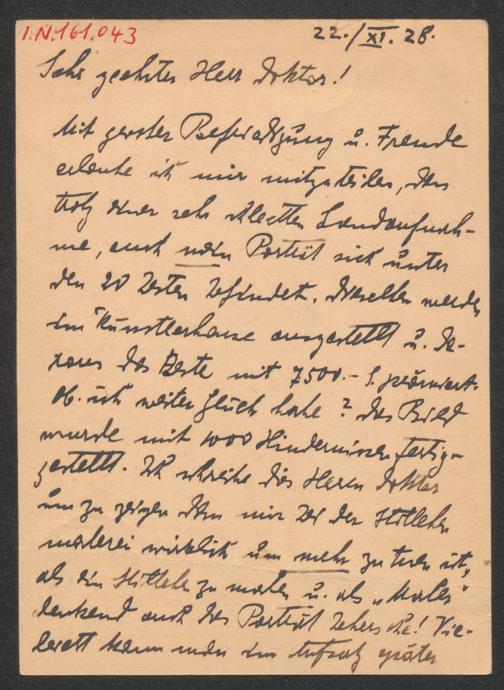 I.N.161.043
22./XI. 28.
Sehr geehrter Herr Doktor!
Mit grosser Befriedigung u. Freude
erlaube ich mir mitzuteilen, dass
trotz einer sehr schlechten
me, auch mein Porträt sich unter
den 20 besten befindet. Dieselben werden
im Künstlerhause ausgestellt u. da-
raus das Beste mit 7500.- S. prämiert.
Ob ich weiter Glück habe? Das Bild
wurde mit 1000 Hindernissen fertig-
gestellt. Ich schreibe dies Herrn Doktor
um zu zeigen dass mir bei der
malerei wirklich um mehr zu tuen ist,
als ein zu malen u. als "Maler"
denkend auch das Porträt! Vie-
leicht kann man im Aufsatz später